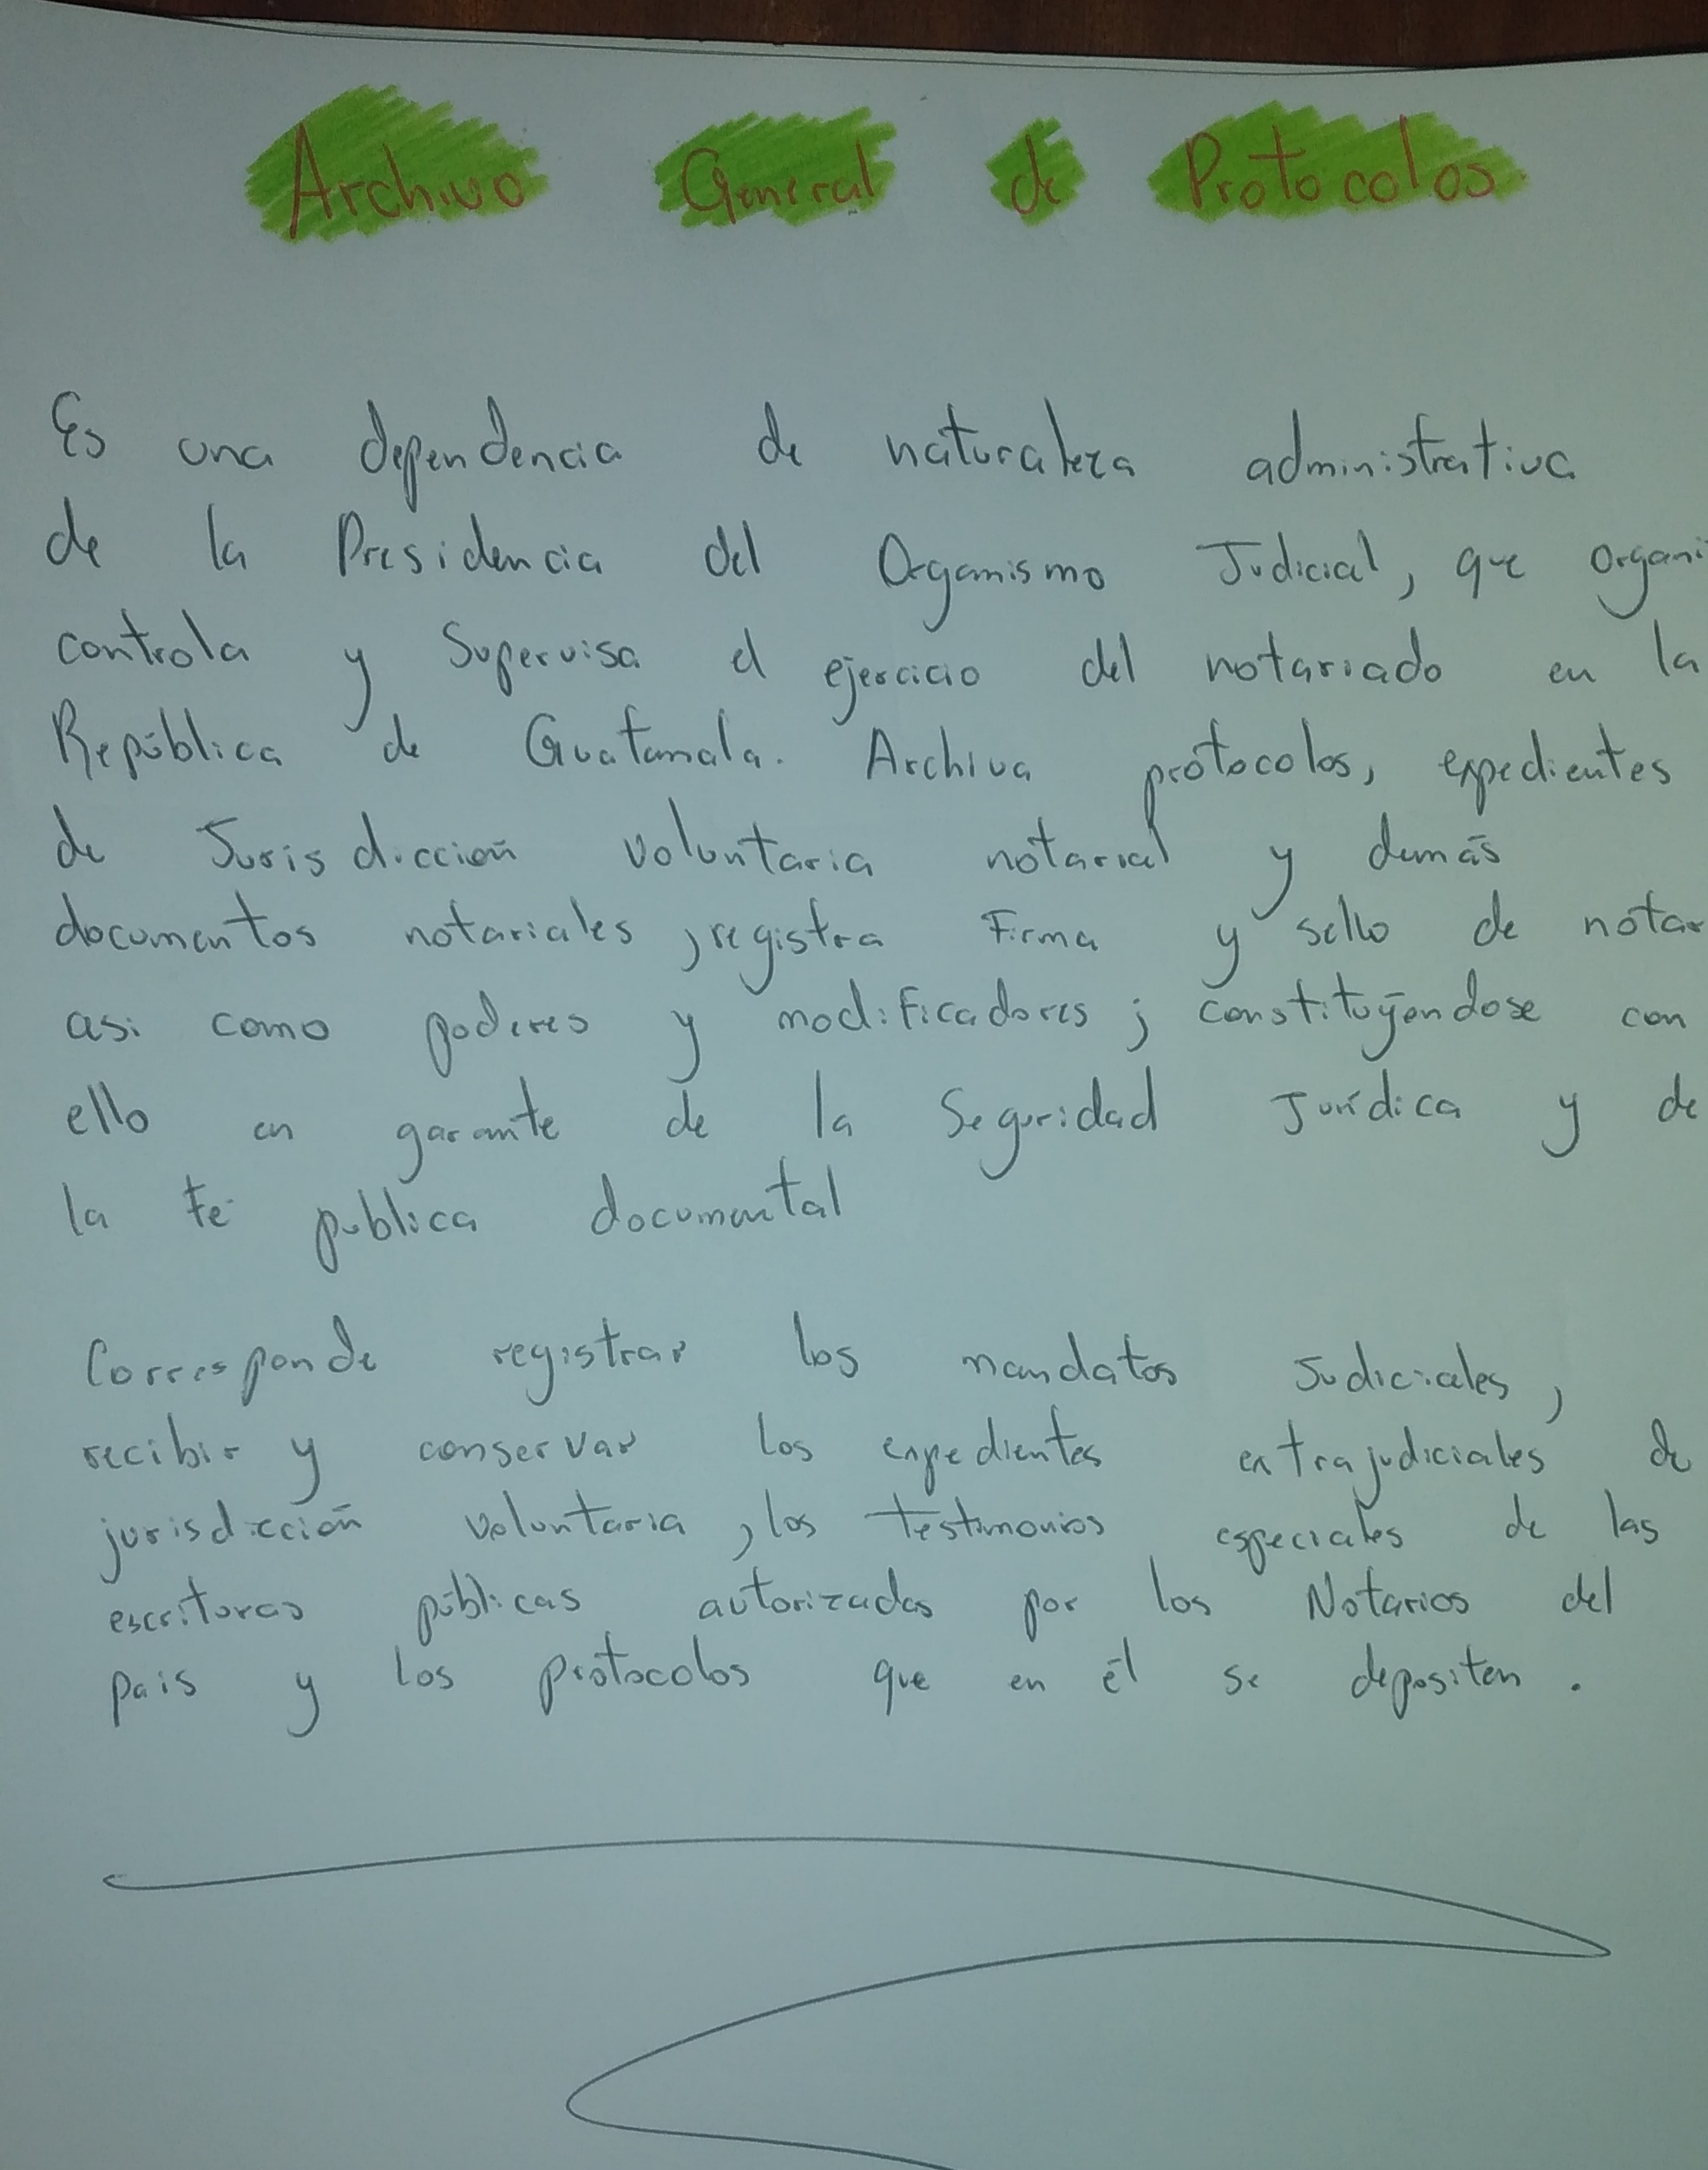 Archivo General de Protocolos
Es una dependencia de naturaleza administrativa
de la Presidencia del Organismo Judicial, que organi
controla y Supervisa el ejercicio del notariado en la
República de Guatemala. Archiva protocolos, expedientes
de Jurisdicción voluntaria notarial y demás
documentos notariales, registra Firma y sello de notar
asi como poderes y modificadores; constituyéndose con
ello en garante de la Seguridad Jurídica y de
la fe publica documental
Corresponde registrar los mandatos Judiciales,
recibir y conservar los expedientes extrajudiciales de
jurisdicción voluntaria, los testimonios especiales de las
escrituras públicas autorizadas por los Notarios del
pais y los protocolos que en él se depositen.